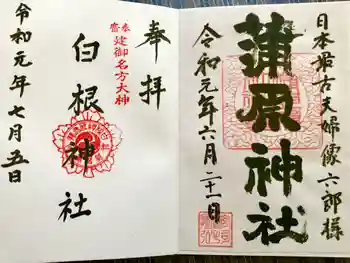 日本最古夫婦像六郎様
蒲原神社
令和元年六月二十一日
奉拝
奉斎
建御名方大神
白根神社
令和元年七月五日